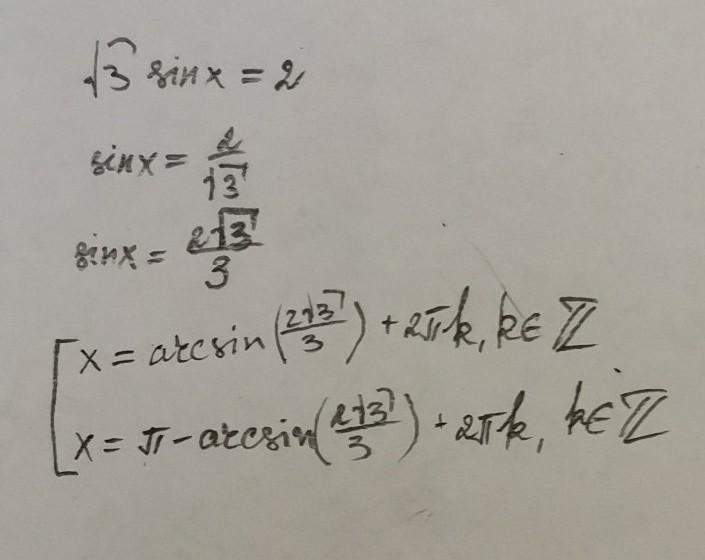 √3 sinx = 2
sinx = 2/√3
sinx = 2√3/3
[ x = arcsin(2√3/3) + 2πk, k∈ℤ
x = π - arcsin(2√3/3) + 2πk, k∈ℤ